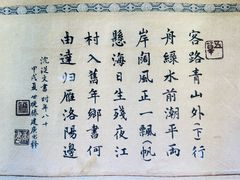 客路青山外(下)行
舟綠水前潮平兩
岸闊風正一飄(帆)
懸海日生殘夜江
村入舊年鄉書何
由達歸雁洛陽邊
文書时年八十
甲戌夏